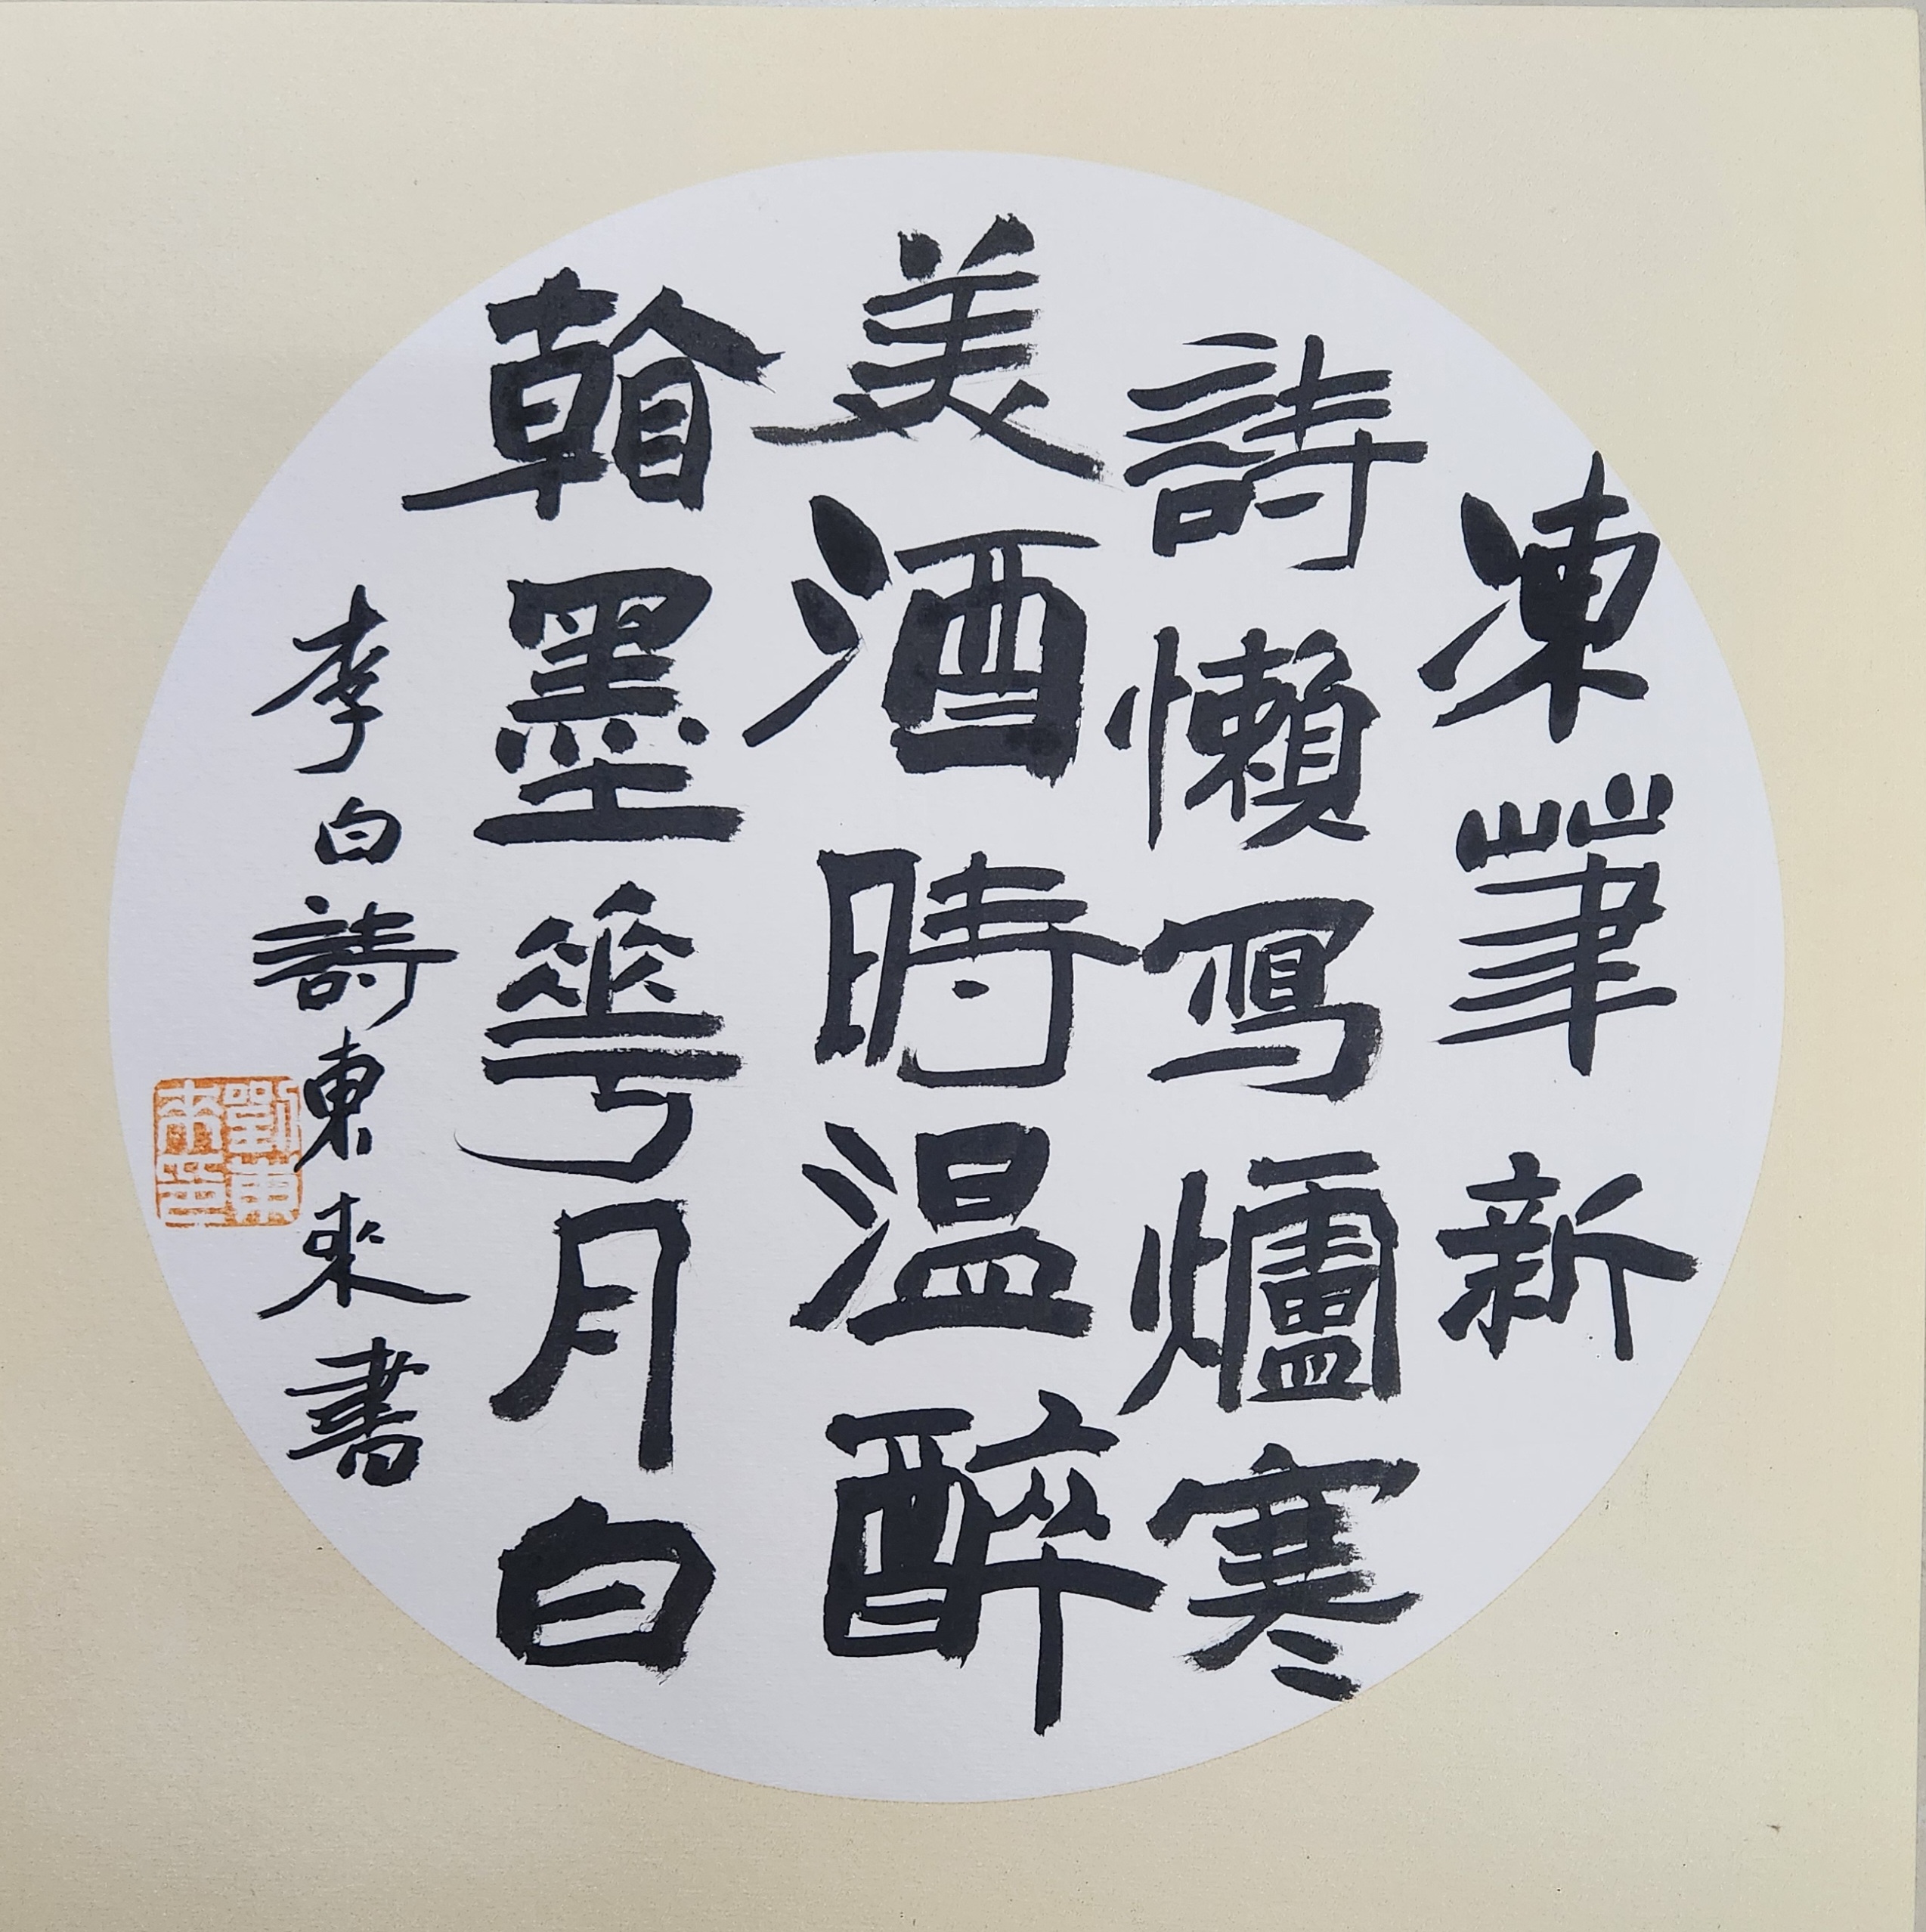 凍筆新
詩懶冩爐寒
美酒時温醉
𥉼墨華月白
李白詩東來書
劉東
來印